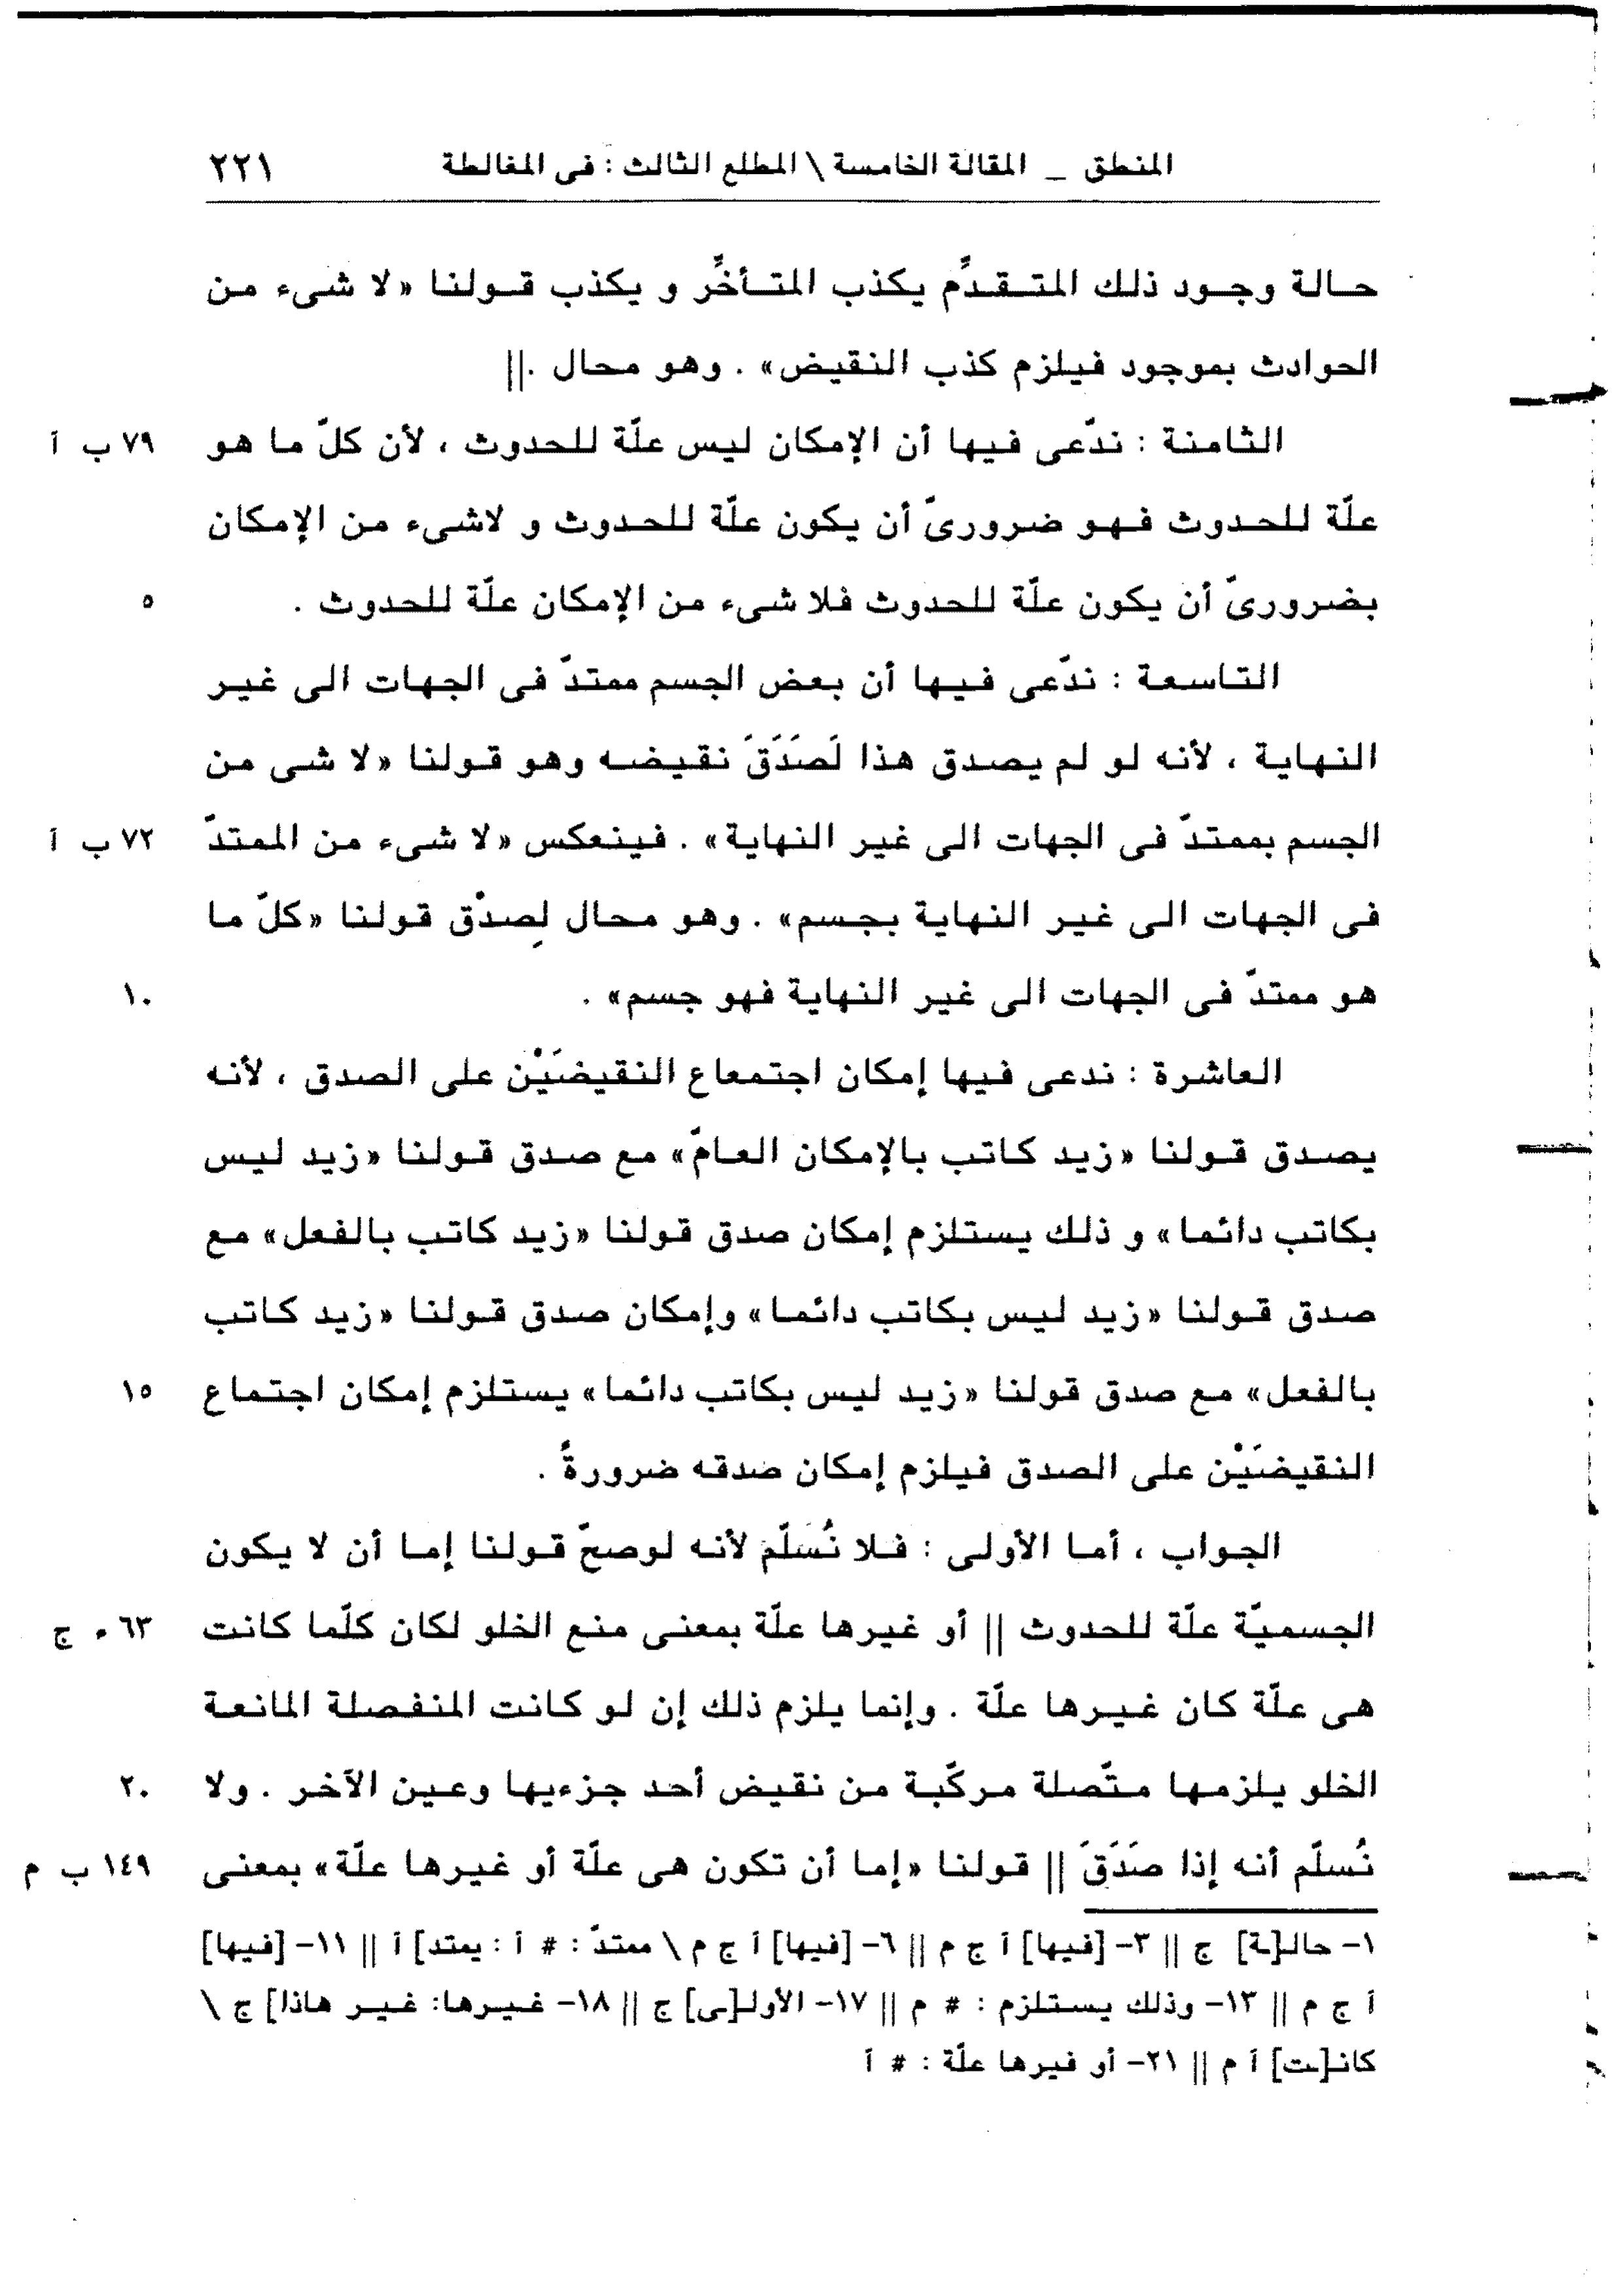 المنطق _ المقالة الخامسة \ المطلع الثالث : فى المغالطة ٢٢١
حالة وجود ذلك المتقدِّم يكذب المتأخِّر و يكذب قولنا «لا شىء من
الحوادث بموجود فيلزم كذب النقيض» . وهو محال .||
الثامنة : ندّعى فيها أن الإمكان ليس علّة للحدوث ، لأن كلّ ما هو ٧٩ ب أ
علّة للحدوث فهو ضرورىّ أن يكون علّة للحدوث و لاشىء من الإمكان
بضرورىّ أن يكون علّة للحدوث فلا شىء من الإمكان علّة للحدوث . ٥
التاسعة : ندّعى فيها أن بعض الجسم ممتدّ فى الجهات الى غير
النهاية ، لأنه لو لم يصدق هذا لَصَدَقَ نقيضه وهو قولنا «لا شى من
الجسم بممتدّ فى الجهات الى غير النهاية» . فينعكس «لا شىء من الممتدّ ٧٢ ب أ
فى الجهات الى غير النهاية بجسم» . وهو محال لِصدْق قولنا «كلّ ما
هو ممتدّ فى الجهات الى غير النهاية فهو جسم» . ١٠
العاشرة : ندعى فيها إمكان اجتمعاع النقيضَيْن على الصدق ، لأنه
يصدق قولنا «زيد كاتب بالإمكان العامّ» مع صدق قولنا «زيد ليس
بكاتب دائما» و ذلك يستلزم إمكان صدق قولنا «زيد كاتب بالفعل» مع
صدق قولنا «زيد ليس بكاتب دائما» وإمكان صدق قولنا «زيد كاتب
بالفعل» مع صدق قولنا «زيد ليس بكاتب دائما» يستلزم إمكان اجتماع ١٥
النقيضَيْن على الصدق فيلزم إمكان صدقه ضرورةً .
الجواب ، أما الأولى : فلا نُسَلّم لأنه لوصحّ قولنا إما أن لا يكون
الجسميّة علّة للحدوث || أو غيرها علّة بمعنى منع الخلو لكان كلّما كانت ٦٣ ء ج
هى علّة كان غيرها علّة . وإنما يلزم ذلك إن لو كانت المنفصلة المانعة
الخلو يلزمها متّصلة مركّبة من نقيض أحد جزءيها وعين الآخر . ولا ٢٠
نُسلّم أنه إذا صَدَقَ || قولنا «إما أن تكون هى علّة أو غيرها علّة» بمعنى ١٤٩ ب م
١- حالـ[ـة] ج || ٣- [فيها] أ ج م || ٦- [فيها] أ ج م \ ممتدّ : # أ : يمتد] أ || ١١- [فيها]
أ ج م || ١٣- وذلك يستلزم : # م || ١٧- الأولـ[ـى] ج || ١٨- غيرها: غير هاذا] ج \
كانـ[ـت] أ م || ٢١- أو فيرها علّة : # أ